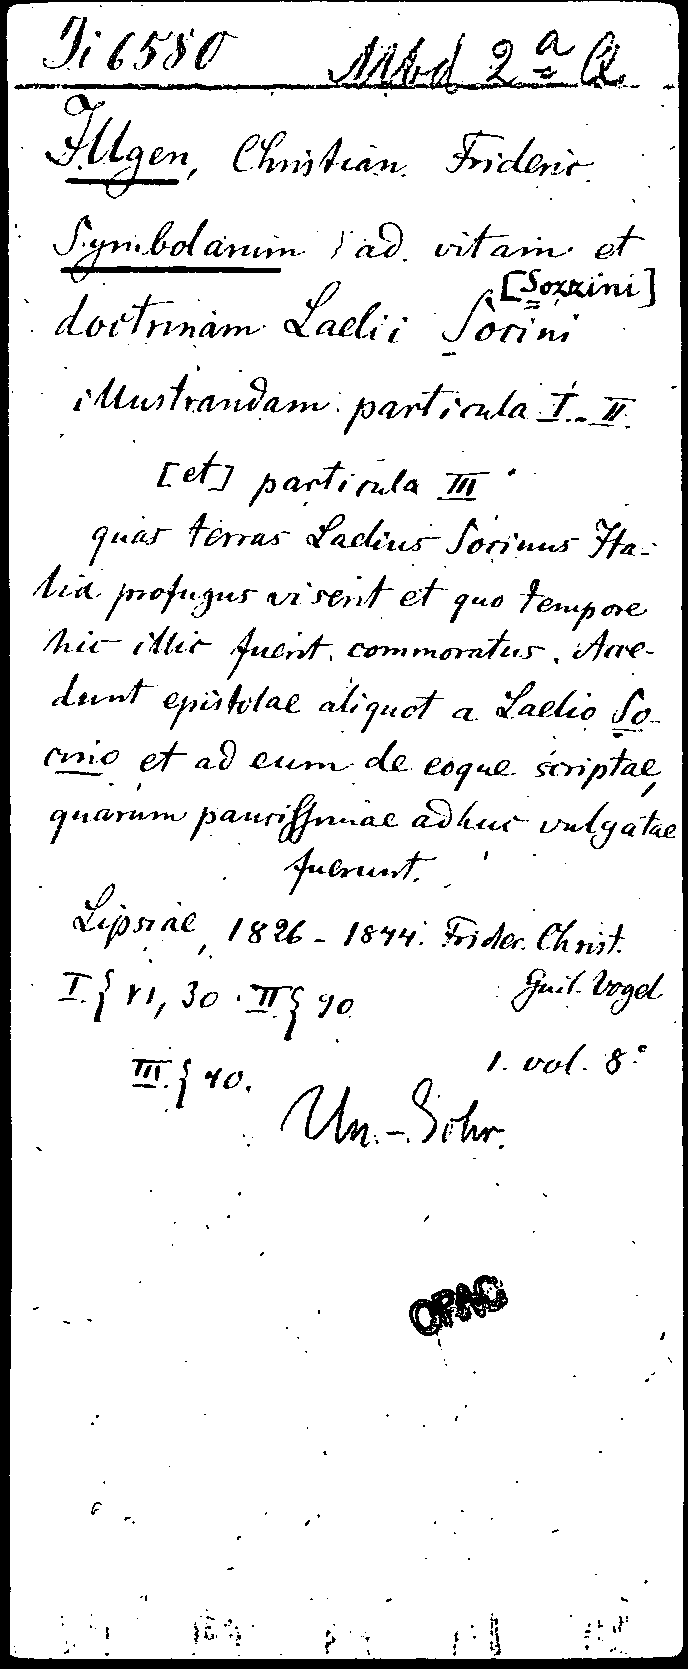 Ji 6580 Mbd 2 a Q
Illgen, Christian Frideric.
Symbolarum ad vitam et
[Sozzini]
doctrinam Laelii Socini
illustrandam particula I. II.
[et] particula III
quas terras Laelius Socinus Ita-
lia profugus viserit et quo tempore
hic illic fuerit commoratus. Acce-
dunt epistolae aliquot a Laelio So-
cino et ad eum de eoque scriptae,
quarum paucissimae adhuc vulgatae
fuerunt.
Lipsiae, 1826 - 1844. Frider. Christ.
Guil. Vogel
I. { VI, 30. II { 90
III. { 40. 1. vol. 8°
Un.-Schr.
OPAC